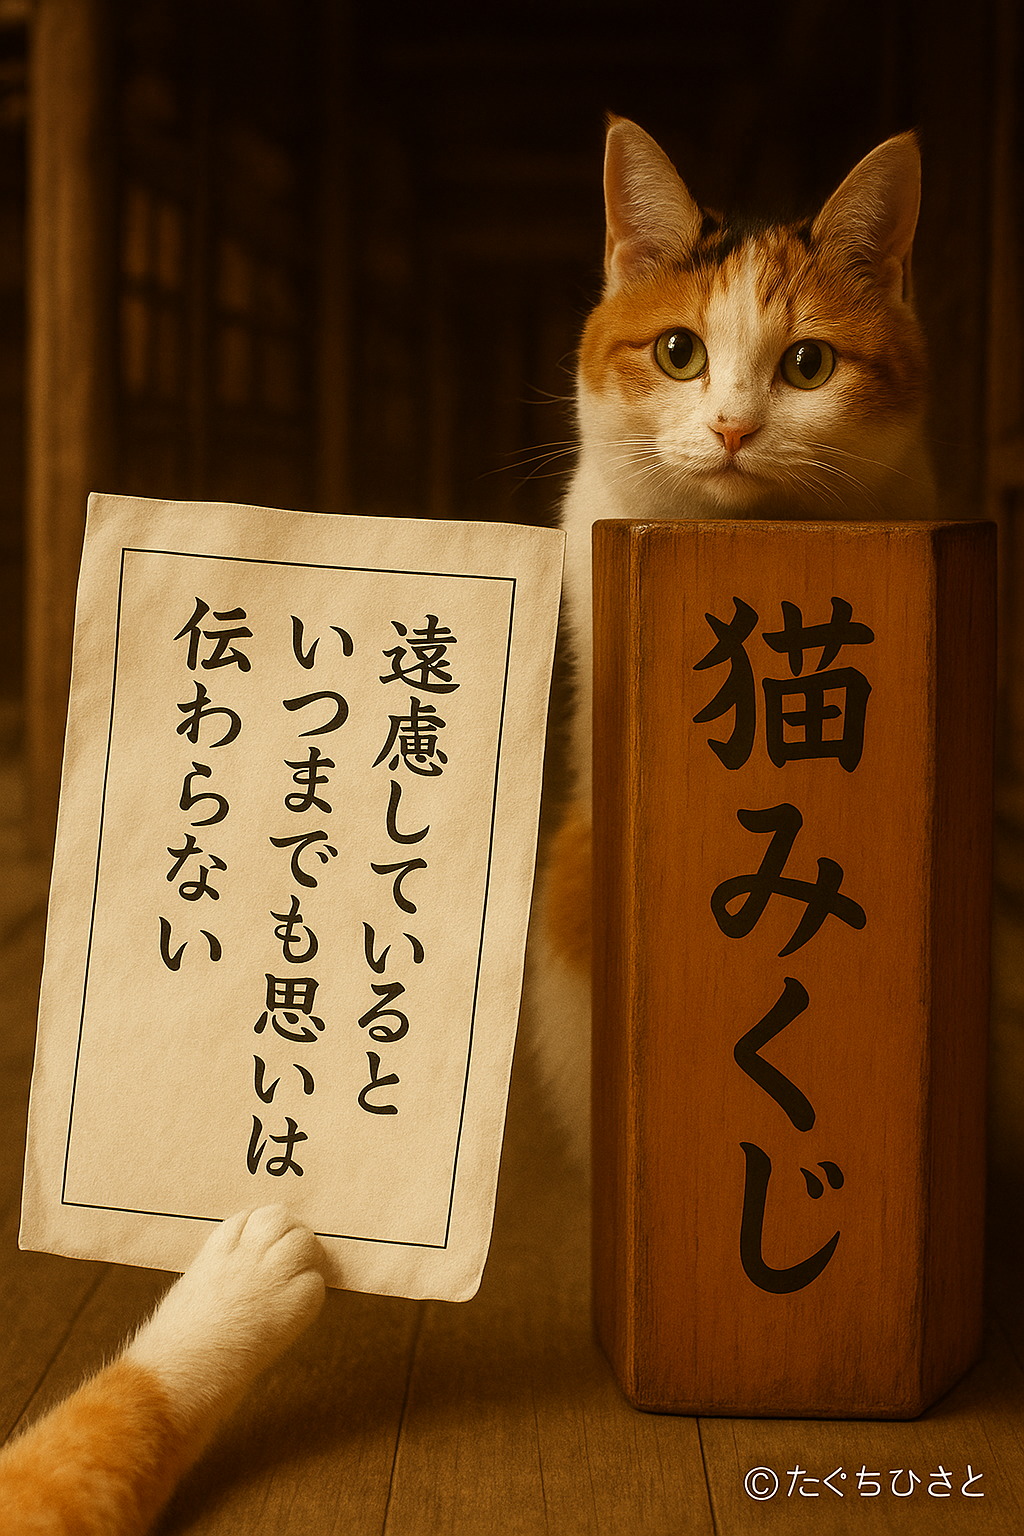 遠慮していると
いつまでも思いは
伝わらない
猫みくじ
©たぐちひさと